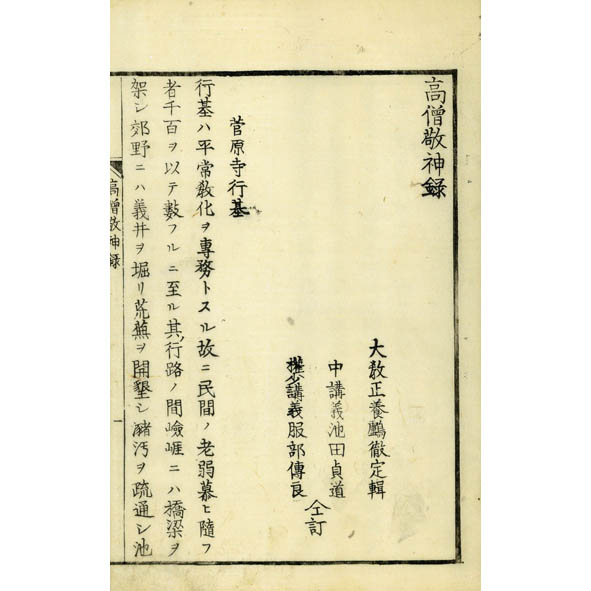 高僧敬神録
大教正養鸕徹定輯
中講義池田貞道
権少講義服部傳良
仝訂
菅原寺行基
行基ハ平常教化ヲ専務トスル故ニ民間ノ老弱慕ヒ隨フ
者千百ヲ以テ數フルニ至ル其行路ノ間嶮崕ニハ橋梁ヲ
架シ郊野ニハ義井ヲ堀リ荒蕪ヲ開墾シ瀦汚ヲ疏通シ池
高僧敬神録
一